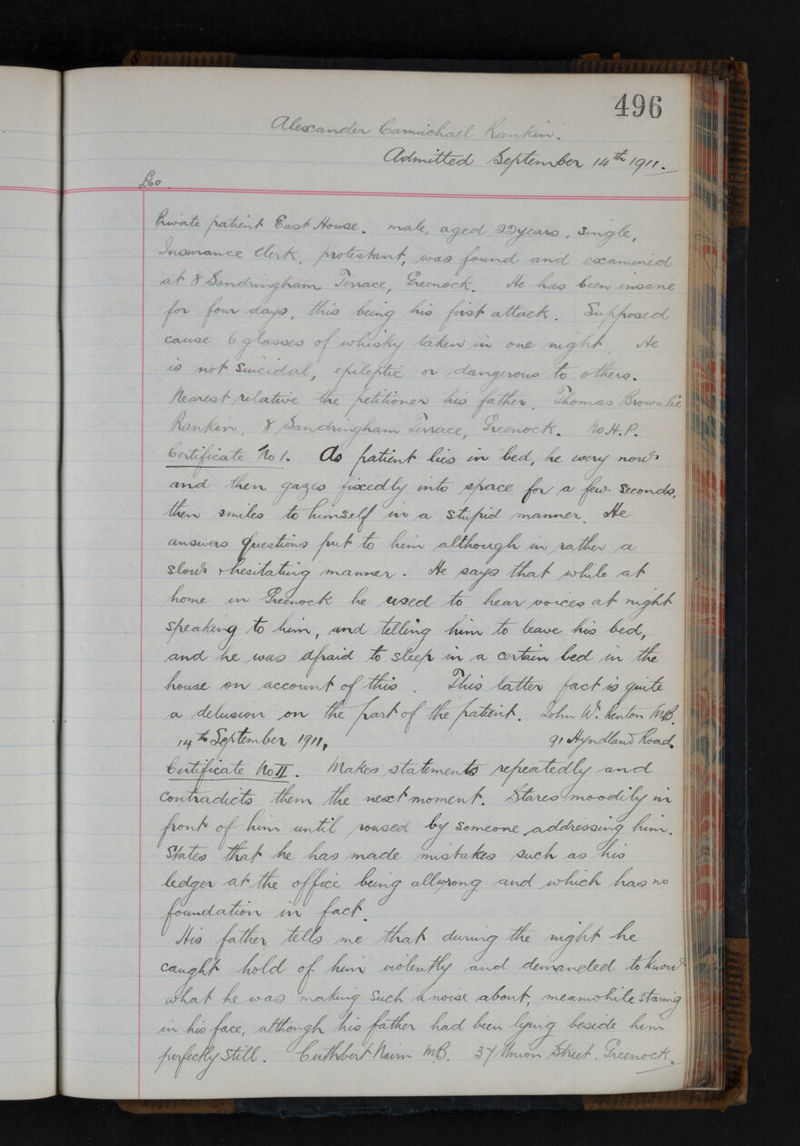 496
Alexander Carmichael Rankin.
Admitted September 14th 1911.
£60.
Private patient East House. male, aged 22 years, single,
Insurance Clerk, protestant, was found and examined
at 8 Sandringham Terrace, Greenock. He has been insane
for four days, this being his first attack. Supposed
cause 6 glasses of whisky taken in one night. He
is not suicidal, epileptic or dangerous to others.
Nearest relative the petitioner his father, Thomas Brownlie
Rankin, 8 Sandringham Terrace, Greenock. No H.P.
Certificate No I. As patient lies in bed, he every now
and then gazes fixedly into space for a few seconds,
then smiles to himself in a stupid manner. He
answers questions put to him although in rather a
slow & hesitating manner. He says that while at
home in Greenock he used to hear voices at night
speaking to him, and telling him to leave his bed,
and he was afraid to sleep in a certain bed in the
house on account of this. This latter fact is quite
a delusion on the part of the patient. John W. Renton M.B.
14th September 1911, 91 Hyndland Road.
Certificate No II. Makes statements repeatedly and
contradicts them the next moment. Stares moodily in
front of him until roused by someone addressing him.
States that he has made mistakes such as his
ledger at the office being all wrong and which has no
foundation in fact.
His father tells me that during the night he
caught hold of him violently and demanded to know
what he was making such a noise about, meanwhile staring
in his face, although his father had been lying beside him
perfectly still. Cuthbert Nairn M.B. 37 Union Street, Greenock.